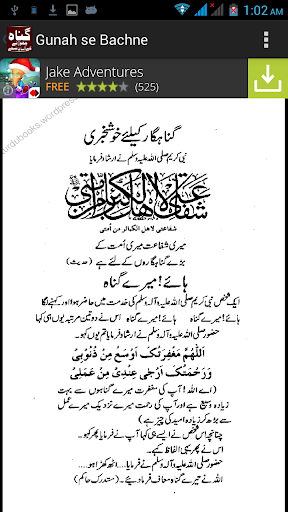 1:02 AM
گناہ
Gunah se Bachne
Jake Adventures
FREE (525)
urdubooks.wordpress
گناہگار کیلئے خوشخبری
نبی کریم صلی اللہ علیہ وسلم نے ارشاد فرمایا
شفاعتی لاھل الکبائر من امتی
شفاعتی لاھل الکبائر من اُمتی
میری شفاعت میری اُمت کے
بڑے گناہگاروں کے لئے ہے (حدیث)
ہائے! میرے گناہ
ایک شخص نبی کریم صلی اللہ علیہ وآلہ وسلم کی خدمت میں حاضر ہوا اور کہنے لگا
ہائے! میرے گناہ ہائے! میرے گناہ اس نے دو تین مرتبہ یوں ہی کہا
حضور صلی اللہ علیہ وآلہ وسلم نے ارشاد فرمایا تم یوں کہو۔
اَللّٰهُمَّ مَغْفِرَتُكَ اَوْسَعُ مِنْ ذُنُوْبِیْ
وَرَحْمَتُكَ اَرْجٰی عِنْدِیْ مِنْ عَمَلِیْ
(اے اللہ! آپ کی مغفرت میرے گناہوں سے بہت
زیادہ وسیع ہے اور آپ کی رحمت میرے نزدیک میرے عمل
سے بڑھ کر زیادہ امید کی چیز ہے)
چنانچہ اس شخص نے ایسے ہی کہا آپ نے فرمایا پھر کہو۔
اس نے پھر یہی الفاظ کہے۔
حضور صلی اللہ علیہ وآلہ وسلم نے فرمایا.... اٹھ کھڑا ہو....
اللہ نے تیرے گناہ معاف فرما دیئے۔ (مستدرک حاکم)